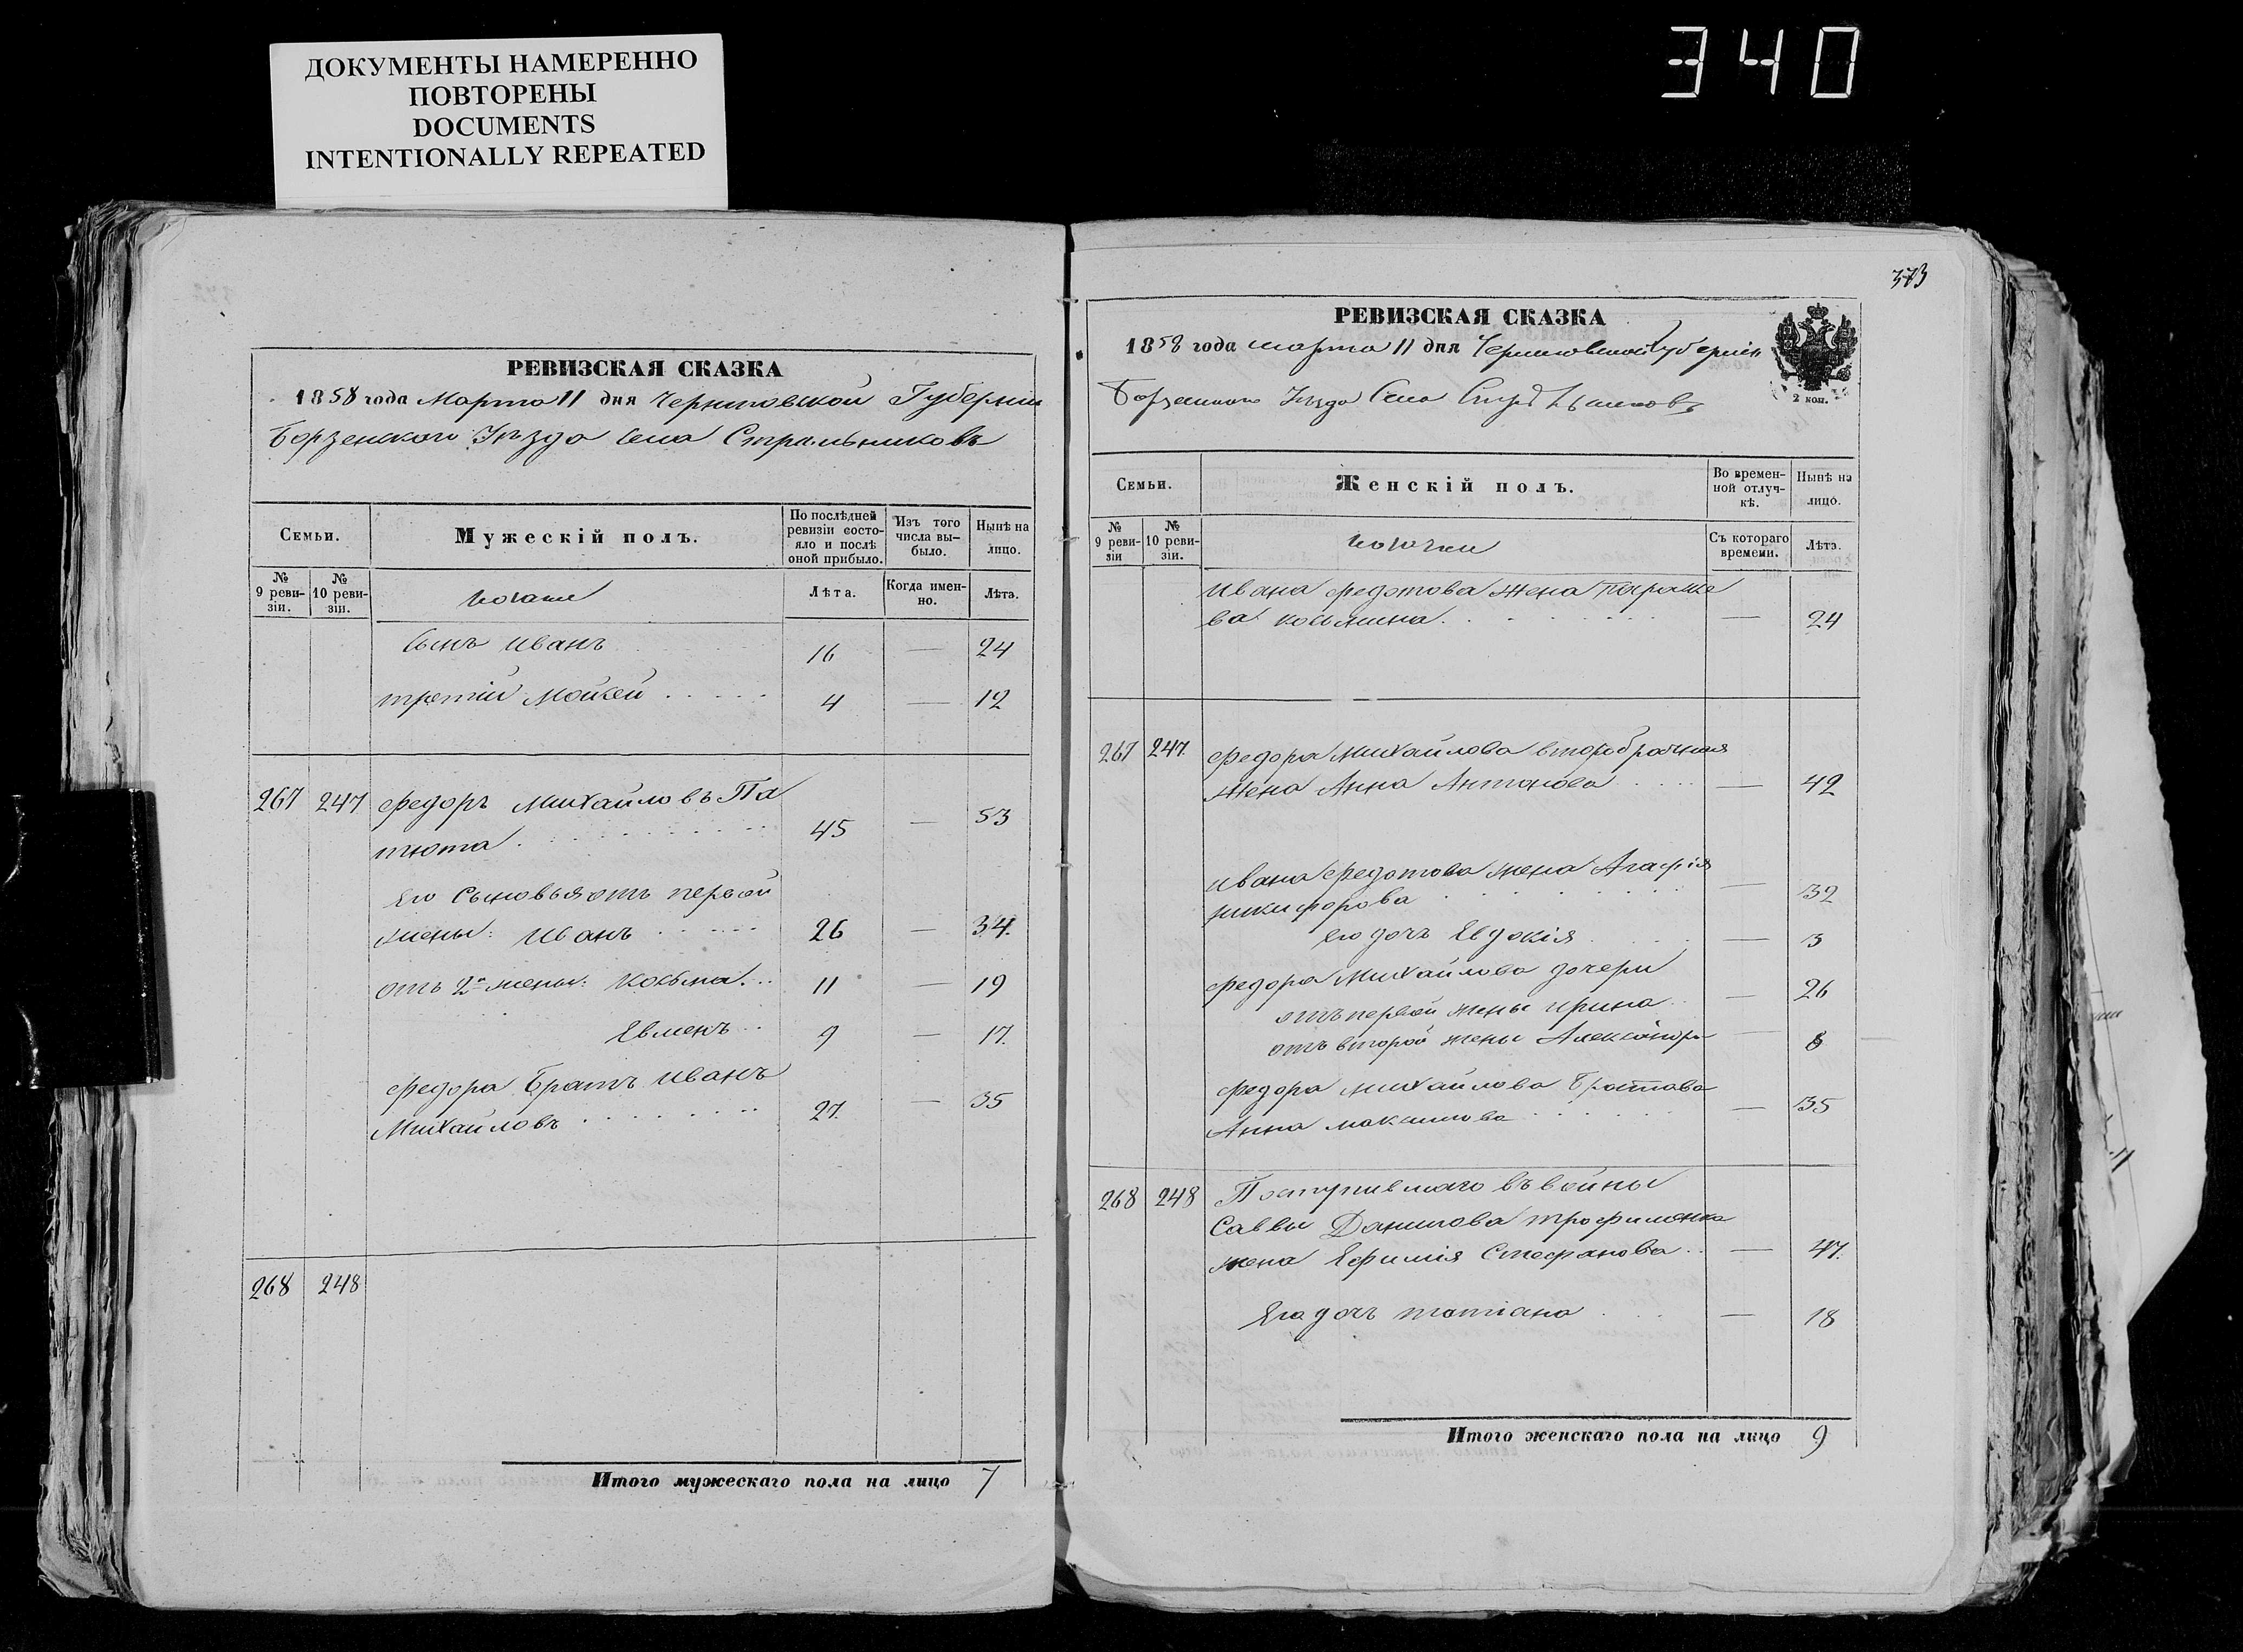 ДОКУМЕНТЫ НАМЕРЕННО
ПОВТОРЕНЫ
DOCUMENTS
INTENTIONALLY REPEATED
340
РЕВИЗСКАЯ СКАЗКА
1858 года Марта 11 дня Черниговской Губерніи
Борзенскаго Уѣзда Села Стрѣльниковъ
Семьи.
Мужескій полъ.
По послѣдней ревизіи состояло и послѣ оной прибыло.
Изъ того числа выбыло.
Нынѣ на лицо.
№ 9 ревизіи.
№ 10 ревизіи.
Лѣта.
Когда именно.
Лѣта.
Сынъ Иванъ 16 — 24
третій Мойсей 4 — 12
267 247 Федоръ Михайловъ Па
пюта 45 — 53
Его Сыновья отъ первой
жены: Иванъ 26 — 34.
отъ 2й жены: Косьма 11 — 19
Евменъ 9 — 17.
Федора Братъ Иванъ
Михайловъ 27. — 35
268 248
Итого мужескаго пола на лицо 7
373
РЕВИЗСКАЯ СКАЗКА
1858 года марта 11 дня Черниговской Губерніи
Борзенскаго Уѣзда Села
2 коп.
Семьи.
Женскій полъ.
Во временной отлучкѣ.
Нынѣ на лицо.
№ 9 ревизіи
№ 10 ревизіи.
Съ котораго времени.
Лѣта.
Ивана Федотова жена Параске
ва Косьмина — 24
267 247. Федора Михайлова второбрачная
жена Анна Антонова — 42
Ивана Федотова жена Агафія
Никифорова — 32
Его дочь Евдокія — 3
Федора Михайлова дочери
отъ первой жены Ирина — 26
отъ второй жены Александра — 8
Федора Михайлова Братова
Анна Максимова — 35
268 248 Поступившаго въ войны
Саввы Данилова Трофименка
жена Ефимія Стефанова — 47.
Его дочь Татіана — 18
Итого женскаго пола на лицо 9